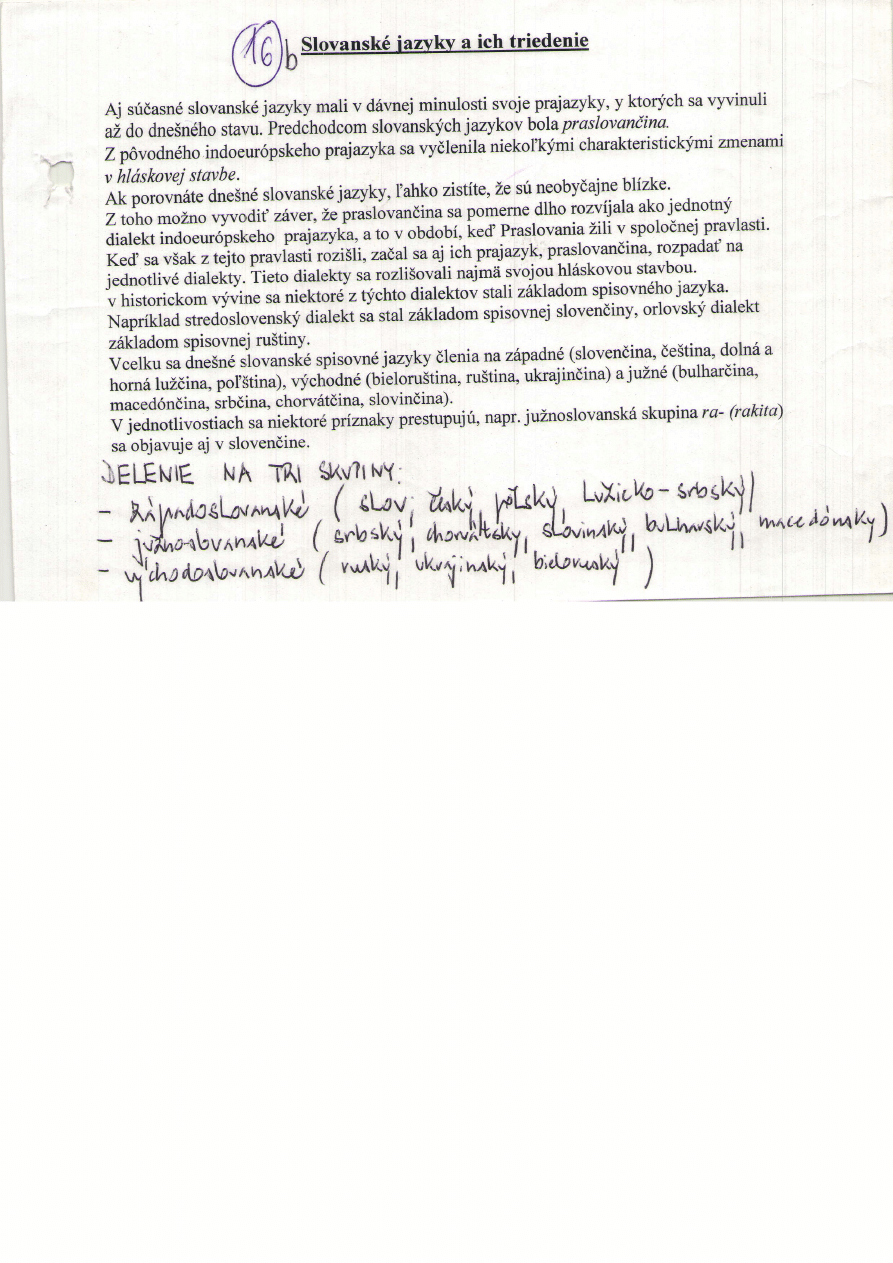 16 b Slovanské jazyky a ich triedenie
Aj súčasné slovanské jazyky mali v dávnej minulosti svoje prajazyky, y ktorých sa vyvinuli
až do dnešného stavu. Predchodcom slovanských jazykov bola praslovančina.
Z pôvodného indoeurópskeho prajazyka sa vyčlenila niekoľkými charakteristickými zmenami
v hláskovej stavbe.
Ak porovnáte dnešné slovanské jazyky, ľahko zistíte, že sú neobyčajne blízke.
Z toho možno vyvodiť záver, že praslovančina sa pomerne dlho rozvíjala ako jednotný
dialekt indoeurópskeho prajazyka, a to v období, keď Praslovania žili v spoločnej pravlasti.
Keď sa však z tejto pravlasti rozišli, začal sa aj ich prajazyk, praslovančina, rozpadať na
jednotlivé dialekty. Tieto dialekty sa rozlišovali najmä svojou hláskovou stavbou.
v historickom vývine sa niektoré z týchto dialektov stali základom spisovného jazyka.
Napríklad stredoslovenský dialekt sa stal základom spisovnej slovenčiny, orlovský dialekt
základom spisovnej ruštiny.
Vcelku sa dnešné slovanské spisovné jazyky členia na západné (slovenčina, čeština, dolná a
horná lužčina, poľština), východné (bieloruština, ruština, ukrajinčina) a južné (bulharčina,
macedónčina, srbčina, chorvátčina, slovinčina).
V jednotlivostiach sa niektoré príznaky prestupujú, napr. južnoslovanská skupina ra- (rakita)
sa objavuje aj v slovenčine.
DELENIE NA TRI SKUPINY:
- západoslovanské ( slov, český, poľský, Lužicko-srbský)
- južno-slovanské ( srbský, chorvátsky, slovinský, bulharský, macedónsky)
- východoslovanské ( ruský, ukrajinský, bieloruský )